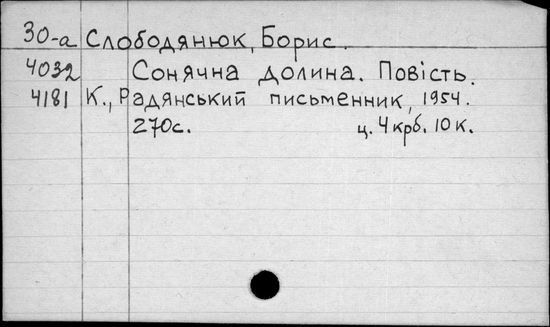 30-а Слободянюк, Борис.
4032 Сонячна долина. Повість.
4181 К., Радянський письменник, 1954.
270с. ц. 4 крб. 10 к.